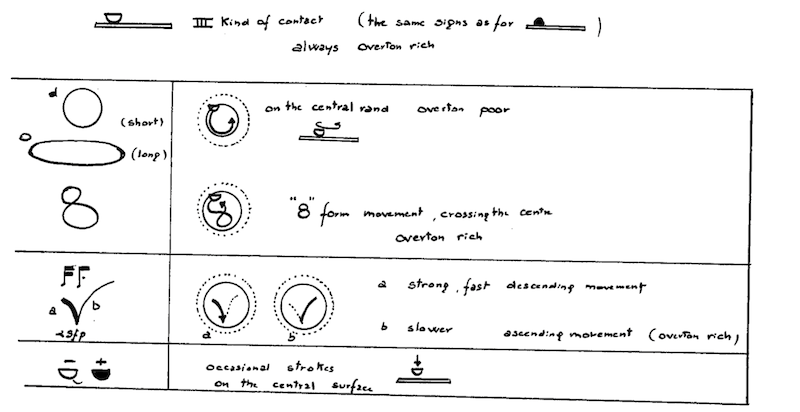 III Kind of contact (the same signs as for )
always overton rich
d
(short)
on the central rand overton poor
(long)
8
"8" form movement, crossing the centre
overton rich
a b
a strong, fast descending movement
a b
b slower ascending movement (overton rich)
- +
occasional strokes
on the central surface
+